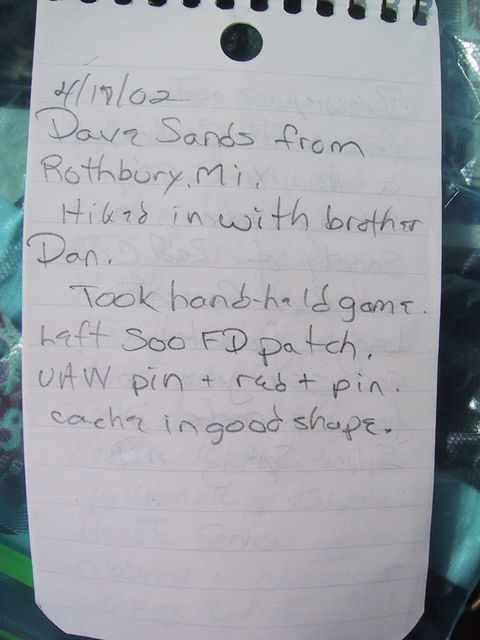 4/19/02
Dave Sands from
Rothbury, Mi.
Hiked in with brother
Dan.
Took hand-held game.
Left Soo FD patch.
UAW pin + red + pin.
cache in good shape.